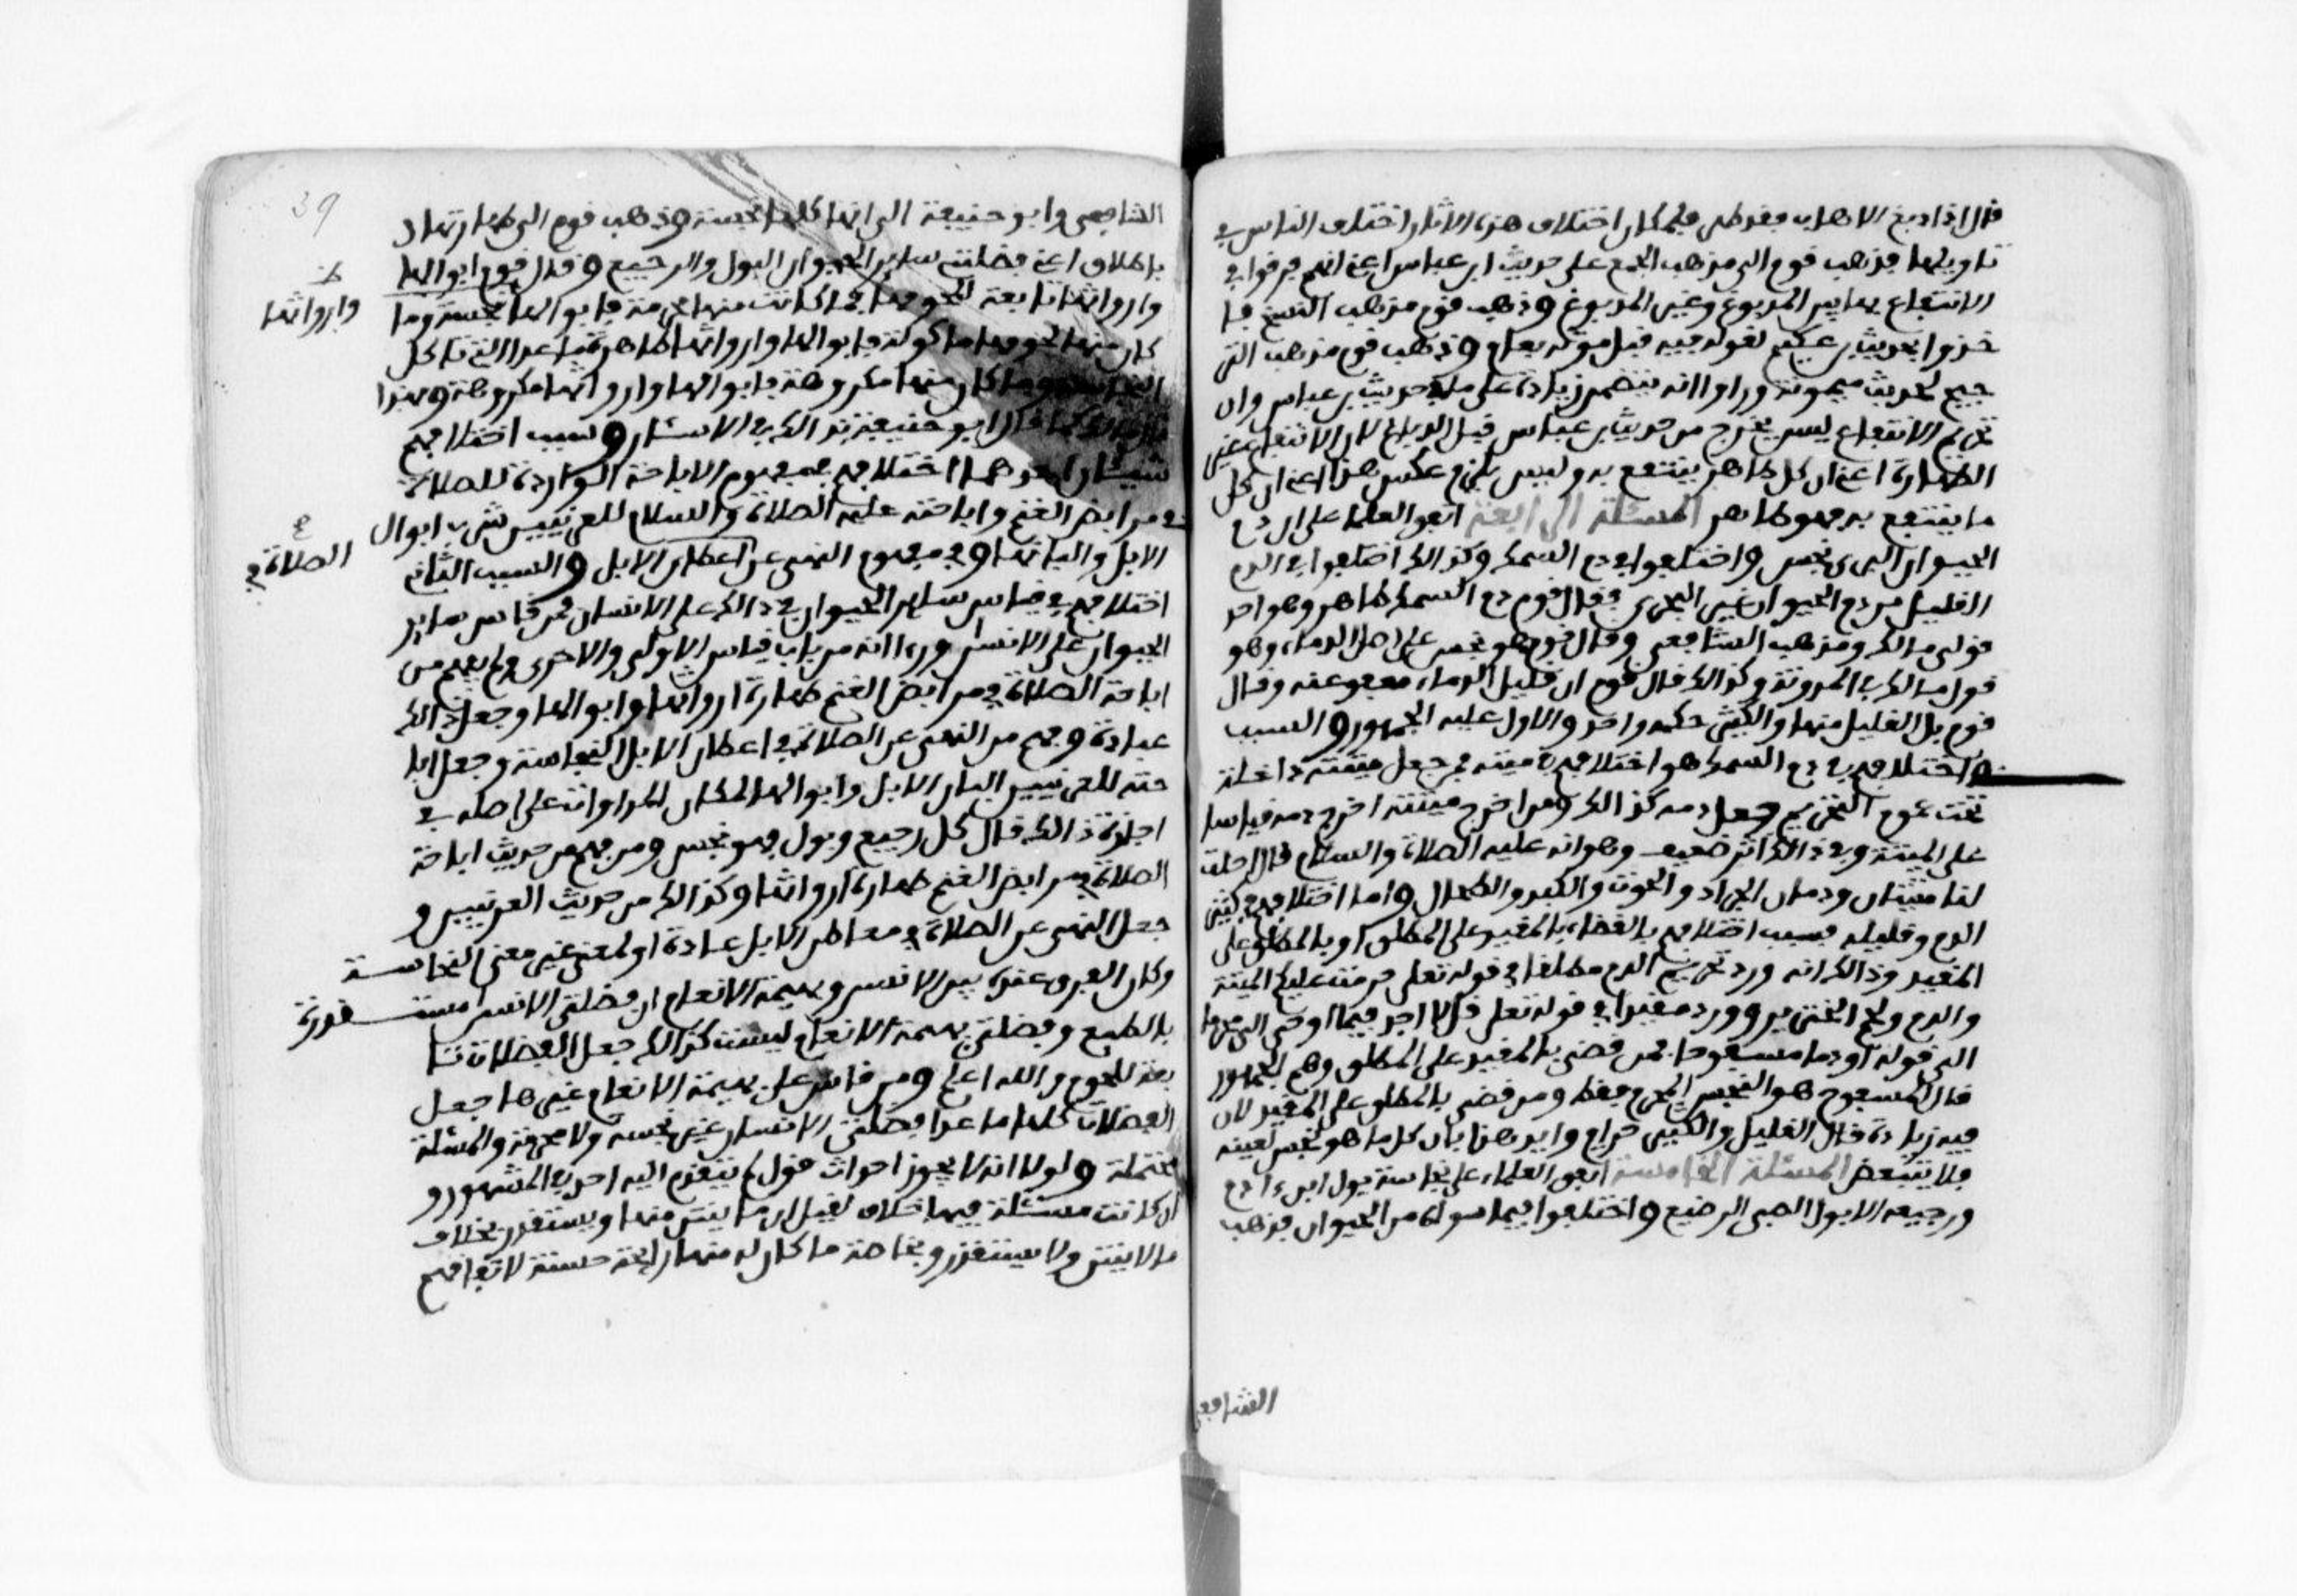 قال اذا دبغ الاهاب فقد طهر فلمكان اختلاف هذه الاثار اختلف الناس في
تاويلها فذهب قوم الى مذهب الجمع على حديث ابن عباس اعني انهم فرقوا في
الانتفاع بها بين المدبوغ وغير المدبوغ وذهب قوم مذهب النسخ فا
خذوا بحديث بن عكيم لقوله فيه قبل موته بعام وذهب قوم مذهب التر
جيح لحديث ميمونة وراوا انه يتضمن زيادة على ما في حديث بن عباس وان
تحريم الانتفاع ليس يخرج من حديث بن عباس قبل الدباغ لان الانتفاع غير
الطهارة اعني ان كل طاهر ينتفع به وليس يلزم عكس هذا اعني ان كل
ما ينتفع به فهو طاهر المسئلة الرابعة اتفق العلما على ان دم
الحيوان البري نجس واختلفوا في دم السمك وكذالك اختلفوا في الدم
القليل من دم الحيوان غير البحري فقال قوم دم السمك طاهر وهو احد
قولي مالك ومذهب الشافعي وقال قوم هو نجس على اصل الدماء وهو
قول مالك في المدونة وكذالك قال قوم ان قليل الدماء معفو عنه وقال
قوم بل القليل منها والكثير حكمه واحد والاول عليه الجمهور والسبب
في اختلافهم في دم السمك هو اختلافهم في ميتته فمن جعل ميتته داخلة
تحت عموم التحريم جعل دمه كذالك ومن اخرج ميتته اخرج دمه قياسا
على الميتة وفي ذالك اثر ضعيف وهو انه عليه الصلاة والسلام قال احلت
لنا ميتتان ودمان الجراد والحوت والكبد والطحال واما اختلافهم في كثير
الدم وقليله فسبب اختلافهم بالقضاء بالمقيد على المطلق او بالمطلق على
المقيد وذالك انه ورد تحريم الدم مطلقا في قوله تعلى حرمت عليكم الميتة
والدم ولحم الخنزير وورد مقيدا في قوله تعلى قل لا اجد فيما اوحي الي محرما
الى قوله او دما مسفوحا فمن قضى بالمقيد على المطلق وهم الجمهور
قال المسفوح هو النجس المحرم فقط ومن قضى بالمطلق على المقيد لان
فيه زيادة قال القليل والكثير حرام وايد هذا بان كل ما هو نجس لعينه
فلا يتبعض المسئلة الخامسة اتفق العلماء على نجاسة بول ابن ءادم
ورجيعه الا بول الصبي الرضيع واختلفوا فيما سواه من الحيوان فذهب
الشافعي
39
الشافعي وابو حنيفة الى انها كلها نجسة وذهب قوم الى طهارتها
باطلاق اعني فضلتي ساير الحيوان البول والرجيع وقال قوم ابوالها
وارواثها تابعة للحومها فما كانت منها محرمة فابوالها نجسة وما
وارواثها
كان منها لحومها ماكولة فابوالها وارواثها طاهرة ما عدا التي تاكل
النجاسة وما كان منها مكروهة فابوالها وارواثها مكروهة وبهذا
قال مالك كما قال ابو حنيفة بذالك في الاسئار وسبب اختلافهم
شيئان احدهما اختلافهم في مفهوم الاباحة الواردة للصلاة
في مرابض الغنم واباحته عليه الصلاة والسلام للعرنيين شرب ابوال
الابل والبانها وفي مفهوم النهي عن اعطان الابل والسبب الثاني
الصلاة في
اختلافهم في قياس ساير الحيوان في ذالك على الانسان فمن قاس ساير
الحيوان على الانسان وراى انه من باب قياس الاولى والاحرى ولم يفهم من
اباحة الصلاة في مرابض الغنم طهارة ارواثها وابوالها وجعل ذالك
عبادة وفهم من النهي عن الصلاة في اعطان الابل النجاسة وجعل ابا
حته للعرنيين البان الابل وابوالها لمكان المداواة على اصله في
اجازة ذالك قال كل رجيع وبول فهو نجس ومن فهم من حديث اباحة
الصلاة في مرابض الغنم طهارة ارواثها وكذالك من حديث العرنيين و
جعل النهي عن الصلاة في معاطن الابل عبادة او لمعنى غير معنى النجاسة
وكان الفرق عنده بين الانسان وبهيمة الانعام ان فضلتي الانسان مستقذرة
بالطبع وفضلتي بهيمة الانعام ليست كذالك جعل الفضلات تا
بعة للحوم والله اعلم ومن قاس على بهيمة الانعام غيرها جعل
الفضلات كلها ما عدا فضلتي الانسان غير نجسة ولا محرمة والمسئلة
محتملة ولولا انه لا يجوز احداث قول لم يتقدم اليه احد في المشهور و
ان كانت مسئلة فيها خلاف لقيل ان ما ينتن منها ويستقذر بخلاف
ما لا ينتن ولا يستقذر وبخاصة ما كان له منها رايحة حسنة لاتفاقهم